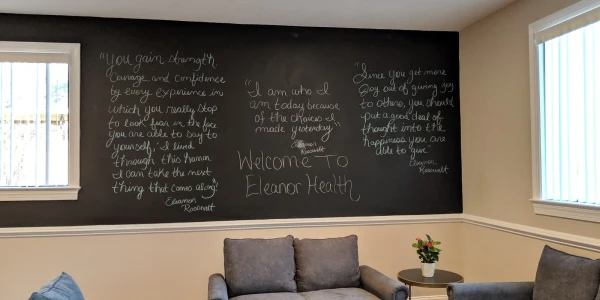 "You gain strength
Courage and confidence
by every experience in
which you really stop
to look fear in the face
you are able to say to
yourself, "I lived
through this horror
I can take the next
thing that comes along"
Eleanor
Roosevelt
"I am who I
am today because
of the choices I
made yesterday"
Eleanor
Roosevelt
Welcome To
Eleanor Health
"Since you get more
Joy out of giving joy
to others, you should
put a good deal of
thought into the
happiness you are
able to give"
Eleanor
Roosevelt